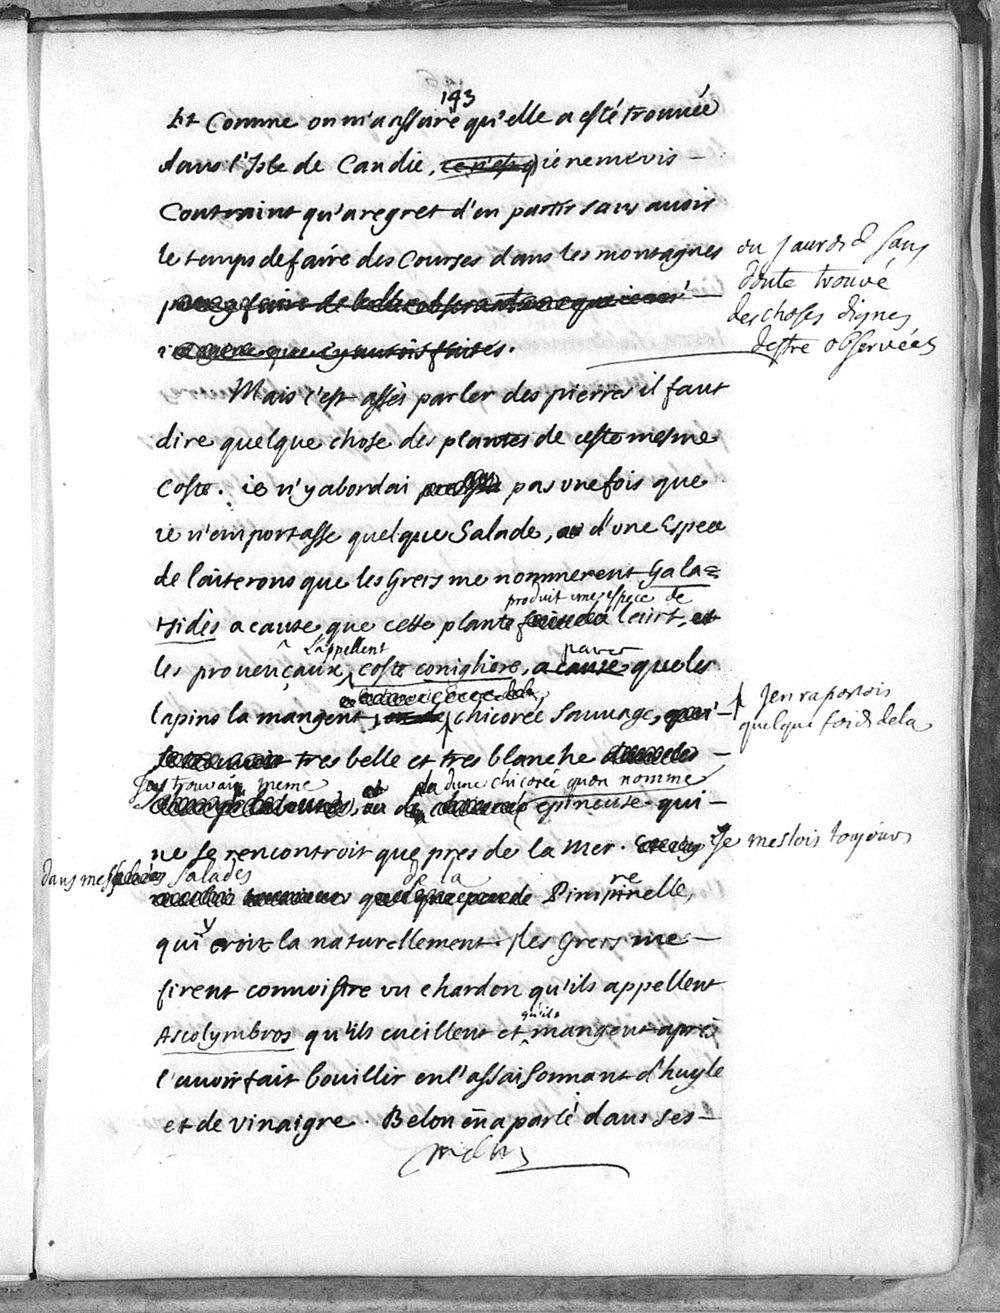 143
Et Comme on m'assure qu'elle a esté trouvée
dans l'Isle de Candie, ie ne me vis –
Contraint qu'a regret d'en partir sans avoir
le temps de faire des Courses dans les montagnes
ou jaurois sans
doute trouvé
des choses dignes
destre observées
Mais c'est assés parler des pierres il faut
dire quelque chose des plantes de ceste mesme
Coste. ie n'y abordai pas une fois que
ie n'emportasse quelque Salade, d'une Espece
de laiterons que les Grecs me nommerent Gala=
produit une espece de
tsidès a cause que cette plante laict,
l'appellent
les provençaux, coste conigliere, a cause que les
lapins la mangent, chicorée Sauvage,
Jen raportois
quelque fois de la
tres belle et tres blanche
Jen trouvai meme
dune chicorée quon nomme
epineuse qui –
ne se rencontroit que pres de la Mer.
Je meslois toujours
dans mes Salades
de la
Pimprenelle,
qui y croit la naturellement. les Grecs me –
firent connoistre un chardon qu'ils appellent
Ascolymbros qu'ils cueillent et qu'ils mangent après
l'avoir fait bouillir en l'assaisonnant d'huyle
et de vinaigre. Belon en a parlé dans ses –